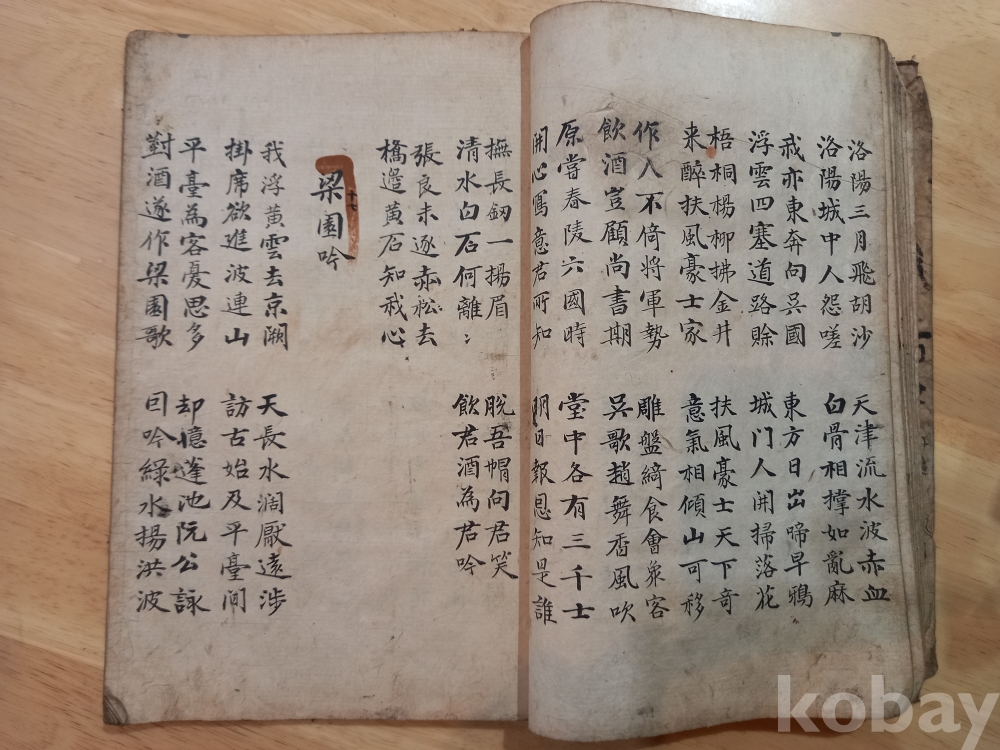 洛陽三月飛胡沙
洛陽城中人怨嗟
天津流水波赤血
白骨相撑如亂麻
我亦東奔向吳國
浮雲四塞道路賒
東方日出啼早鴉
城門人開掃落花
梧桐楊柳拂金井
来醉扶風豪士家
扶風豪士天下奇
意氣相傾山可移
作人不倚將軍勢
飲酒豈顧尚書期
雕盤綺食會衆客
吳歌趙舞香風吹
原嘗春陵六國時
開心寫意君所知
堂中各有三千士
明日報恩知是誰
撫長釰一揚眉
清水白石何離〻
脫吾帽向君笑
飲君酒為君吟
張良未逐赤松去
橋邉黄石知我心
梁園吟
十七
我浮黄雲去京闕
掛席欲進波連山
天長水濶厭遠涉
訪古始及平臺间
平臺為客憂思多
對酒遂作梁園歌
却憶蓬池阮公詠
囙吟綠水揚洪波
kobay